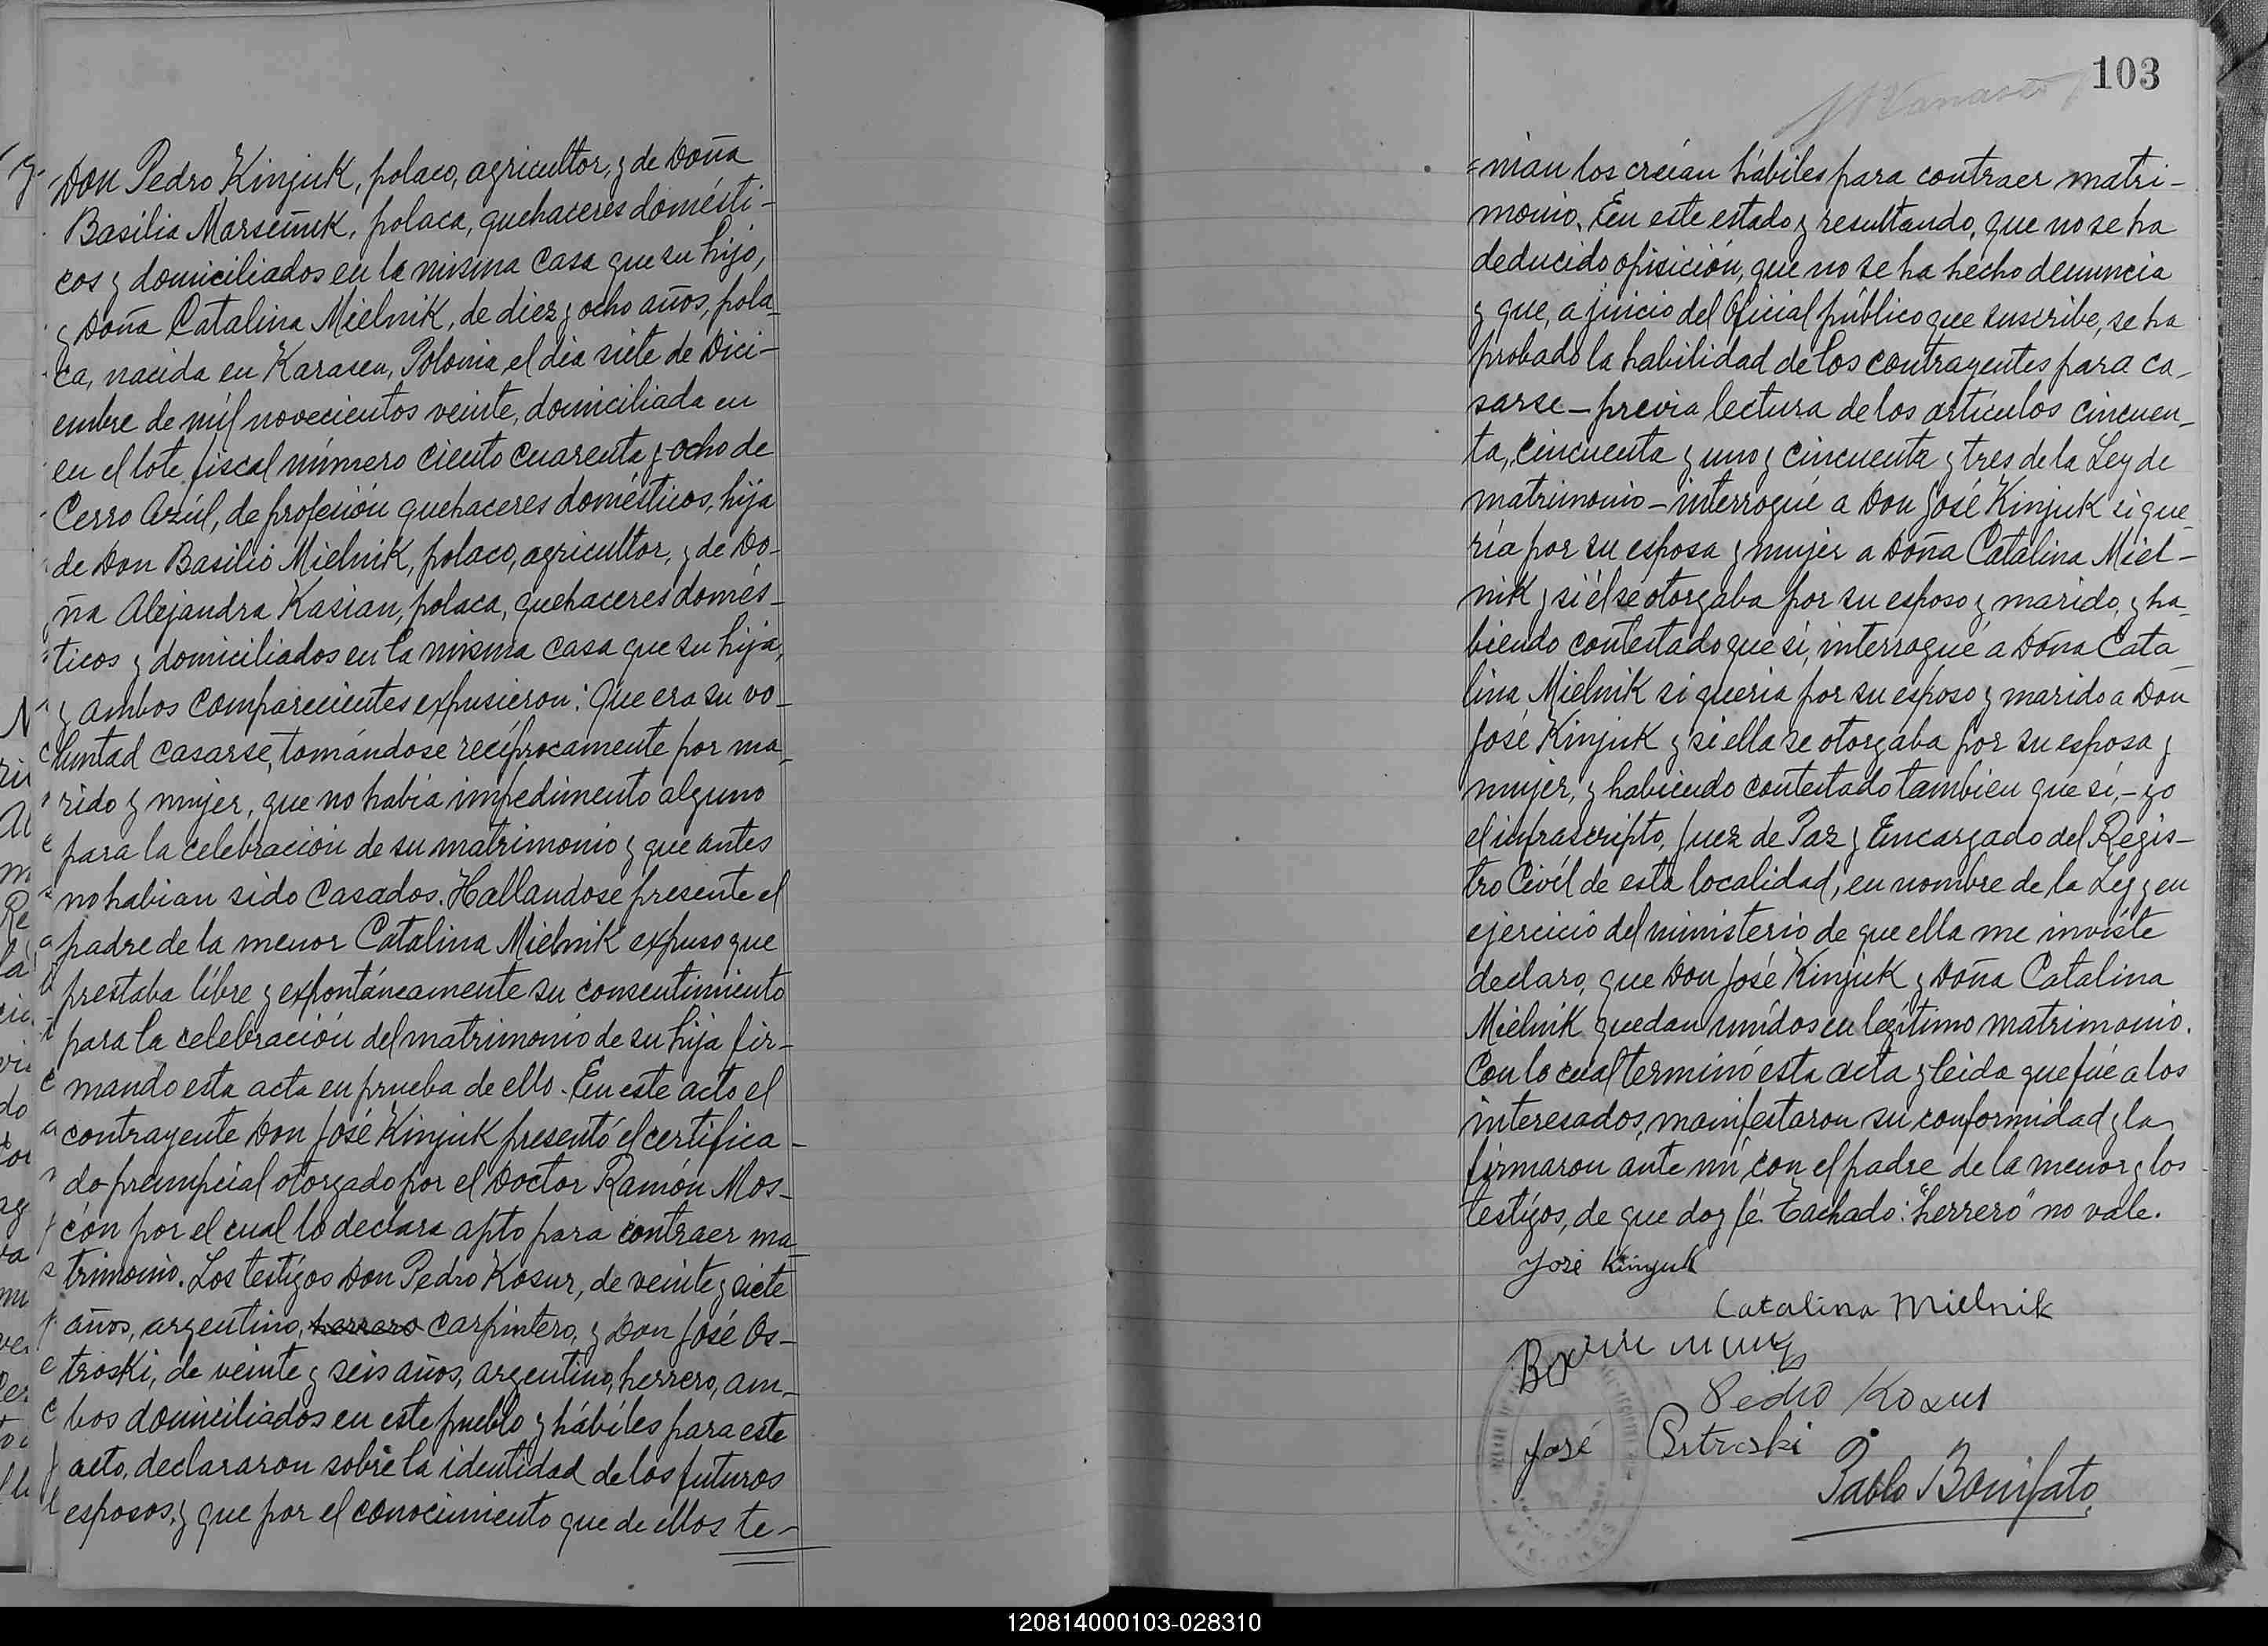 Don Pedro Kinjuk, polaco, agricultor, y de Doña
Basilia Marseñuk, polaca, quehaceres domésti-
cos y domiciliados en la misma casa que su hijo,
y Doña Catalina Mielnik, de diez y ocho años, pola-
ca, nacida en Karasen, Polonia, el día siete de Dici-
embre de mil novecientos veinte, domiciliada en
en el lote fiscal número ciento cuarenta y ocho de
Cerro Azúl, de profesión quehaceres domésticos, hija
de Don Basilio Mielnik, polaco, agricultor, y de Do-
ña Alejandra Kasian, polaca, quehaceres domés-
ticos y domiciliados en la misma casa que su hija,
y ambos comparecientes expusieron: Que era su vo-
luntad casarse, tomándose recíprocamente por ma-
rido y mujer, que no había impedimento alguno
para la celebración de su matrimonio y que antes
no habian sido casados. Hallandose presente el
padre de la menor Catalina Mielnik expuso que
prestaba libre y expontáneamente su consentimiento
para la celebración del matrimonio de su hija fir-
mando esta acta en prueba de ello. En este acto el
contrayente Don José Kinjuk presentó el certifica-
do prenupcial otorgado por el Doctor Ramón Mos-
cón por el cual lo declara apto para contraer ma-
trimonio. Los testigos Don Pedro Kosur, de veinte y siete
años, argentino, herrero carpintero, y Don José Os-
troski, de veinte y seis años, argentino, herrero, am-
bos domiciliados en este pueblo y hábiles para este
acto, declararon sobre la identidad de los futuros
esposos, y que por el conocimiento que de ellos te-
103
=nian los creían hábiles para contraer matri-
monio. En este estado y resultando, que no se ha
deducido oposición, que no se ha hecho denuncia
y que, a juicio del Oficial público que suscribe, se ha
probado la habilidad de los contrayentes para ca-
sarse - previa lectura de los artículos cincuen-
ta, cincuenta y uno y cincuenta y tres de la Ley de
matrimonio - interrogué a Don José Kinjuk si que-
ría por su esposa y mujer a Doña Catalina Miel-
nik y si él se otorgaba por su esposo y marido, y ha-
biendo contestado que si, interrogué a Doña Cata-
lina Mielnik si queria por su esposo y marido a Don
José Kinjuk y si ella se otorgaba por su esposa y
mujer, y habiendo contestado tambien que sí, - yo
el infrascripto, Juez de Paz y Encargado del Regis-
tro Civíl de esta localidad, en nombre de la Ley y en
ejercicio del ministerio de que ella me inviste
declaro, que Don José Kinjuk y Doña Catalina
Mielnik quedan unídos en legítimo matrimonio.
Con lo cual terminó esta acta y leida que fué a los
interesados, manifestaron su conformidad y la
firmaron ante mí con el padre de la menor y los
testigos, de que doy fé. Tachado: "herrero" no vale.
José Kinyuk
Catalina Mielnik
Pedro Kosur
José Ostroski
Pablo Bonifato
MISIONES
120814000103-028310